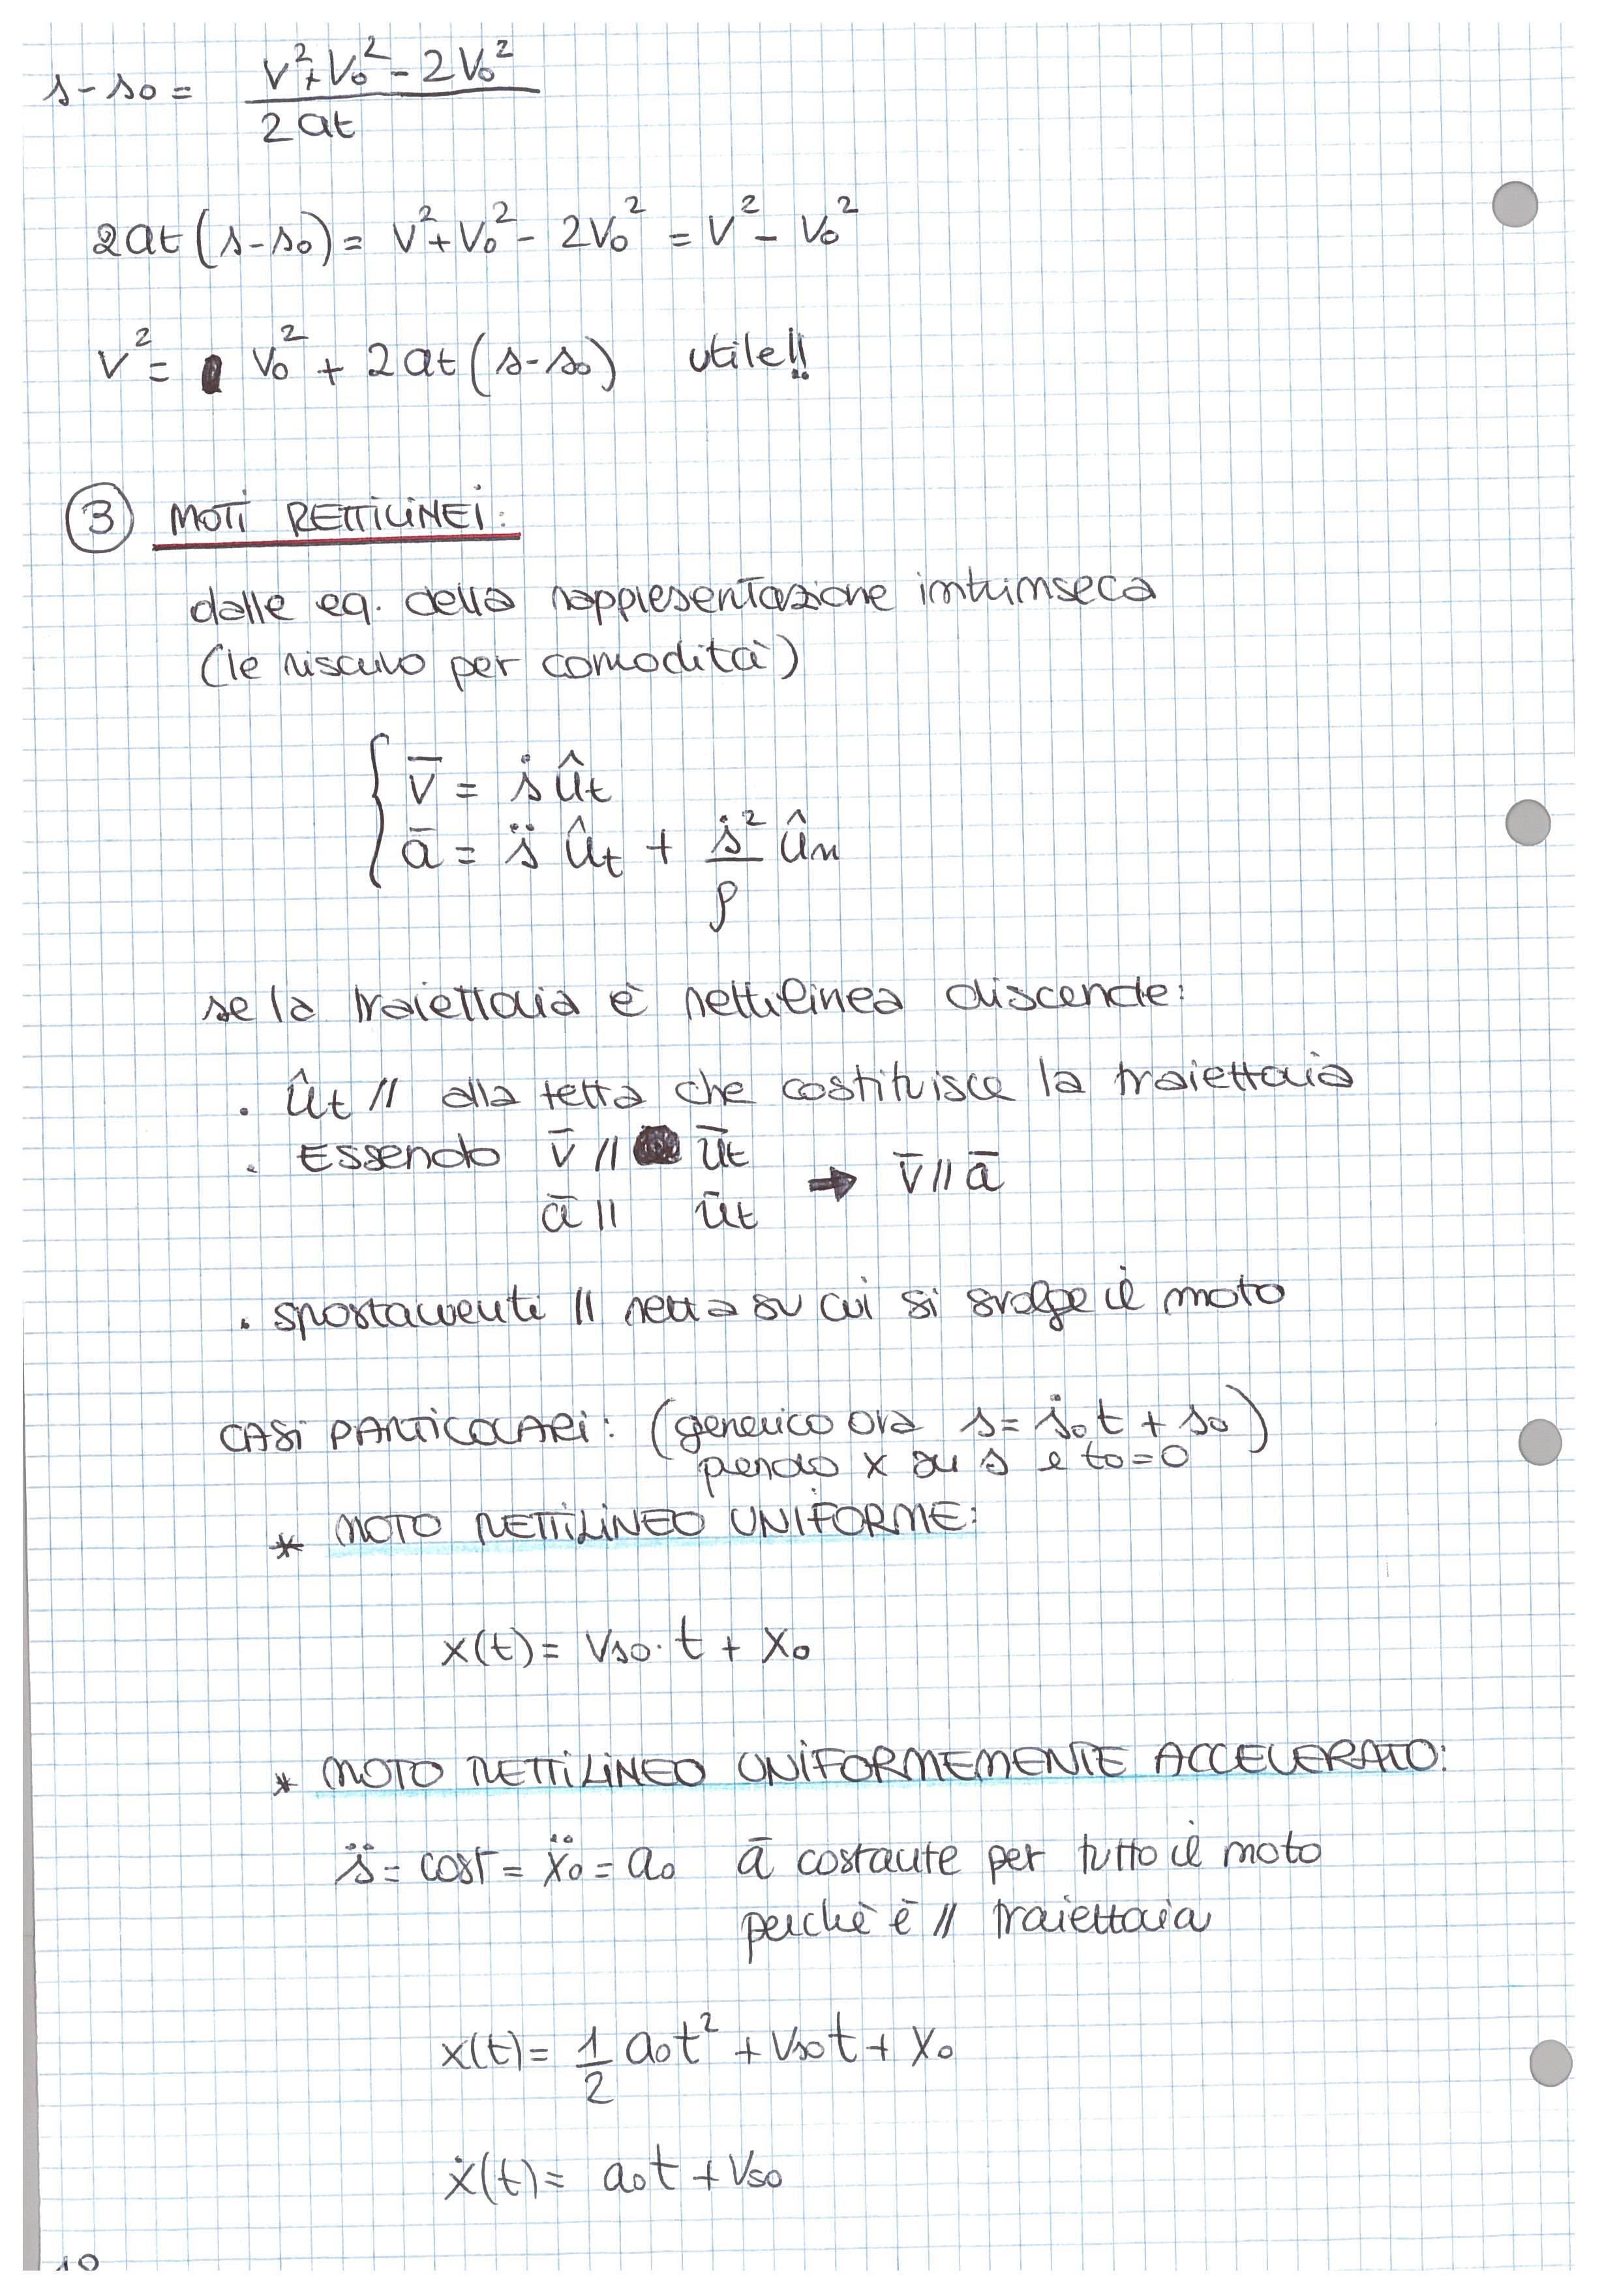 s-s₀ = (v²+v₀²-2v₀²)/(2at)
2at(s-s₀) = v²+v₀²-2v₀² = v²-v₀²
v² = v₀² + 2at(s-s₀) utile!!
③ MOTI RETTILINEI:
dalle eq. della rappresentazione intrinseca
(le riscrivo per comodità)
{ v̄ = ṡ ût
ā = s̈ ût + ṡ²/ρ ûn
se la traiettoria è rettilinea discende:
. ût // alla retta che costituisce la traiettoria
. Essendo v̄ // ūt
ā // ūt → v̄ // ā
. spostamenti // retta su cui si svolge il moto
CASI PARTICOLARI: (generico ora s = ṡ₀t + s₀)
prendo x su s e t₀=0
* MOTO RETTILINEO UNIFORME:
x(t) = vs₀·t + x₀
* MOTO RETTILINEO UNIFORMEMENTE ACCELERATO:
s̈ = cost = ẍ₀ = a₀ ā costante per tutto il moto
perchè è // traiettoria
x(t) = 1/2 a₀t² + vs₀t + x₀
ẋ(t) = a₀t + vs₀